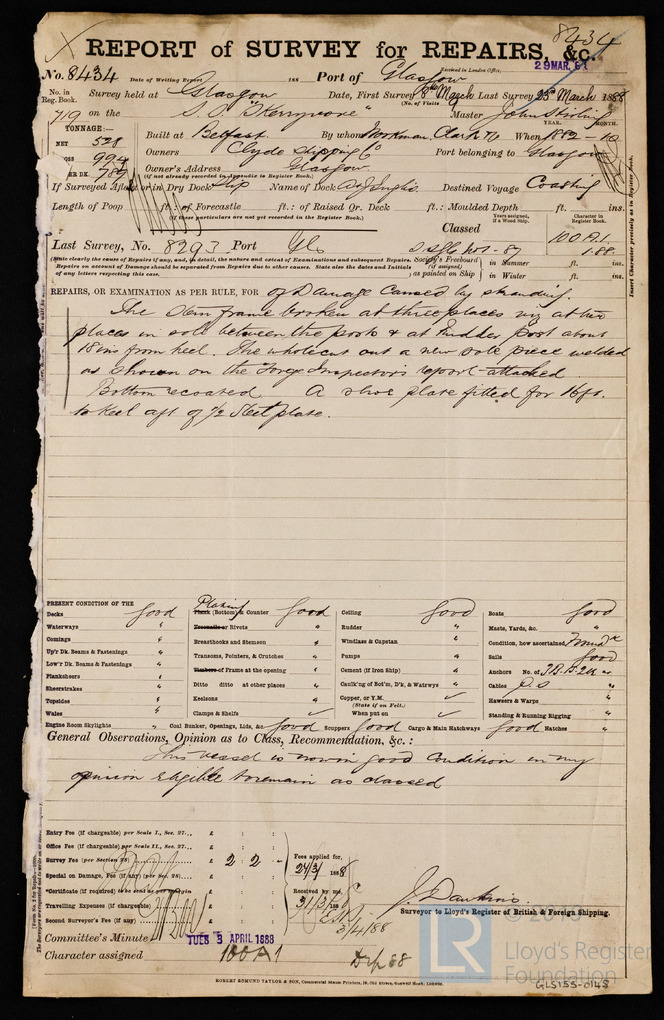 8434
REPORT of SURVEY for REPAIRS, &c.
29 MAR. 88
No. 8434 Date of Writing Report 188 Port of Glasgow Received in London Office,
No. in Reg. Book. Survey held at Glasgow Date, First Survey 8th March Last Survey 23 March 1888
(No. of Visits
719 on the S.S. "Kerrymore" Master John Stirling
TONNAGE:— YEAR. MONTH.
NET 528 Built at Belfast By whom Workman, Clark & Co When 1882 - 10
GROSS 994 Owners Clyde Shipping Co Port belonging to Glasgow
Owner's Address Glasgow
(If not already recorded in Appendix to Register Book.)
If Surveyed Afloat or in Dry Dock Slip Name of Dock D & J Inglis Destined Voyage Coasting
Length of Poop ft.: of Forecastle ft.: of Raised Qr. Deck ft.: Moulded Depth ft. ins.
(If these particulars are not yet recorded in the Register Book.)
Years assigned, if a Wood Ship. Character in Register Book.
Classed 100 A1
1.88
Last Survey, No. 8293 Port Gls
(State clearly the cause of Repairs if any, and, in detail, the nature and extent of Examinations and subsequent Repairs.
Repairs on account of Damage should be separated from Repairs due to other causes. State also the dates and Initials
of any letters respecting this case.
Society's Freeboard (if assigned) as painted on Ship in Summer ft. ins.
in Winter ft. ins.
Insert Character precisely as in Register Book.
REPAIRS, OR EXAMINATION AS PER RULE, FOR of Damage caused by stranding.
The Stern frame broken at three places viz at two
places in sole between the posts & at Rudder post about
18 ins from heel. The whole cut out a new sole piece welded
as shown on the Forge Inspector's report attached
Bottom recoated A shoe plate fitted for 16 ft.
to keel aft of 1/2 Steel plate.
PRESENT CONDITION OF THE
Decks good
Waterways "
Comings "
Up'r Dk. Beams & Fastenings "
Low'r Dk. Beams & Fastenings "
Planksheers "
Sheerstrakes "
Topsides "
Wales "
Engine Room Skylights "
Plating
Plank (Bottom) & Counter good
Treenails or Rivets "
Breasthooks and Stemson "
Transoms, Pointers, & Crutches "
Timbers or Frame at the opening "
Ditto ditto at other places "
Keelsons "
Clamps & Shelfs ✓
Coal Bunker, Openings, Lids, &c. good
Ceiling good
Rudder "
Windlass & Capstan "
Pumps "
Cement (if Iron Ship) "
Caulk'g of Bot'm, D'k, & Watrwys "
Copper, or Y.M. ✓
(State if on Felt.)
When put on ✓
Scuppers good Cargo & Main Hatchways good
Boats good
Masts, Yards, &c. "
Condition, how ascertained, Found
Sails good
Anchors No. of 3B. 1S. 2K
Cables P.S
Hawsers & Warps "
Standing & Running Rigging "
Hatches "
General Observations, Opinion as to Class, Recommendation, &c.:
This vessel is now in good condition in my
opinion eligible to remain as classed
Entry Fee (if chargeable) per Scale I., Sec. 27... £ : :
Office Fee (if chargeable) per Scale II., Sec. 27... £ : :
Survey Fee (per Section 28) £ 2 : 2 : -
Special on Damage, Fee (if any) (per Sec. 28) £ : :
*Certificate (if required) to be sent as per margin
Travelling Expenses (if chargeable) £ : :
Second Surveyor's Fee (if any) £ : :
Fees applied for, 24/3 1888
Received by me, 31/3/88
3/4/88
J. Dawkins
Surveyor to Lloyd's Register of British & Foreign Shipping.
Committee's Minute TUES 3 APRIL 1888
Character assigned 100 A 1
ROBERT EDMUND TAYLOR & SON,
LR
Lloyd's Register
Foundation
GLS155-0148